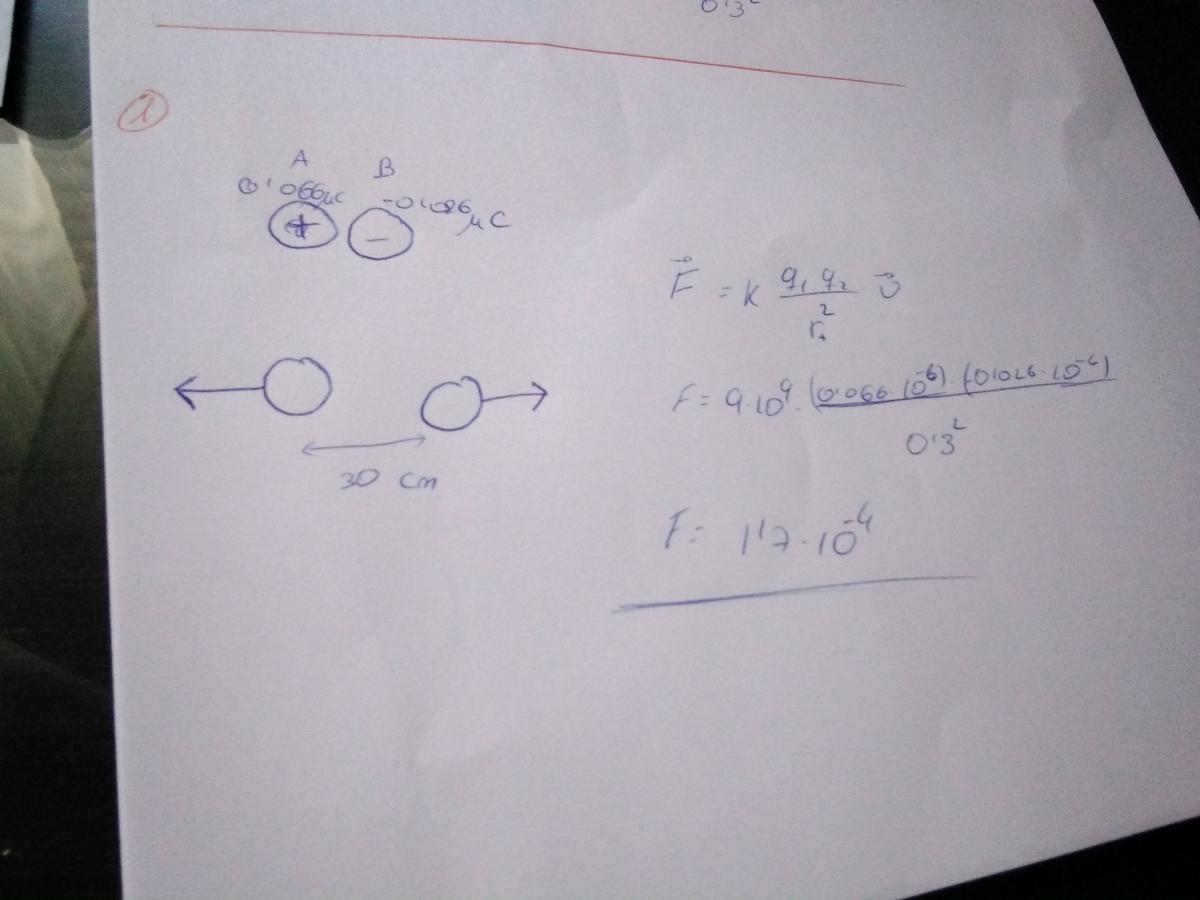 0'3²
1
A B
0'066μC -0'026μC
+ -
30 cm
F⃗ = K q₁ q₂ / r² U⃗
F = 9·10⁹ · (0'066·10⁻⁶) · (0'026·10⁻⁶) / 0'3²
F = 1'7·10⁻⁴